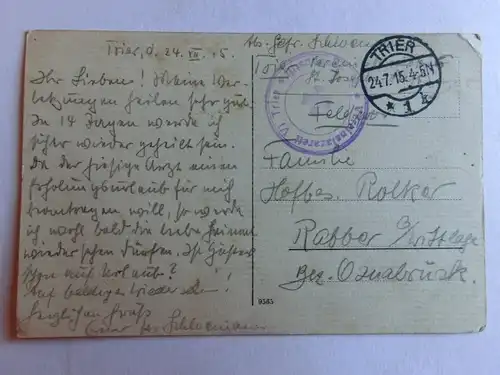 Trier, d. 24. VII. 15.
Ihr Lieben! Meine Ver-
letzungen heilen sehr gut.
In 14 Tagen werde ich
sicher wieder geheilt sein.
Da der hiesige Arzt einen
Erholungsurlaub für mich
beantragen will, so werde
ich wohl bald die liebe Heimat
wieder sehen dürfen. Ist Gustav
schon auf Urlaub?
Auf baldiges Wiedersehen!
Herzlichen Gruß
Euer
Abs. Gefr.
Trier
St. Josef
TRIER
24.7.15. 4-5N
Trier
Feldpost
Familie
Hofbes. Rolker
Rabber
Bez. Osnabrück.
9585